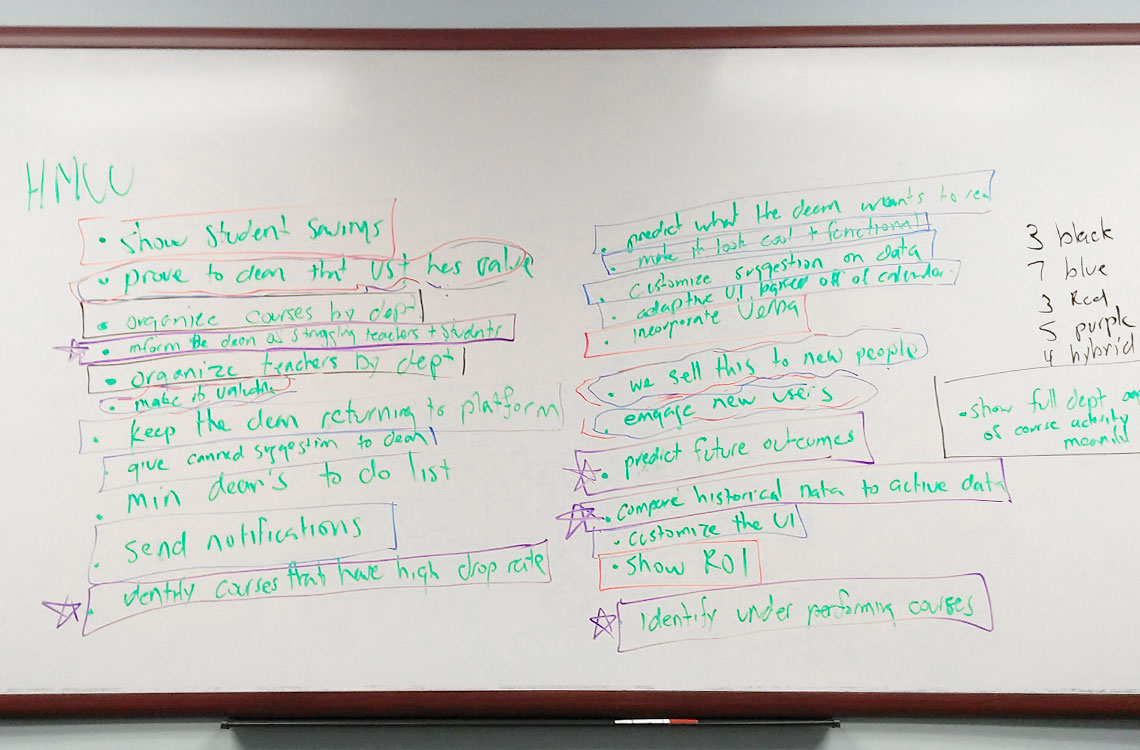 HMCU
• show student savings
• prove to dean that VST has value
• organize courses by dept
• inform the dean of struggling teachers + students
• organize teachers by dept
• make it valuable
• keep the dean returning to platform
• give canned suggestion to dean
• min dean's to do list
• send notifications
• identify courses that have high drop rate
• predict what the dean wants to read
• make it look cool + functional
• customize suggestion on data
• adaptive UI based off of calendar
• incorporate Verba
• we sell this to new people
• emgage new user's
• predict future outcomes
• compare historical data to active data
• customize the UI
• show ROI
Identify under performing courses
3 black
7 blue
3 Red
5 purple
4 hybrid
• show full dept
of course activity